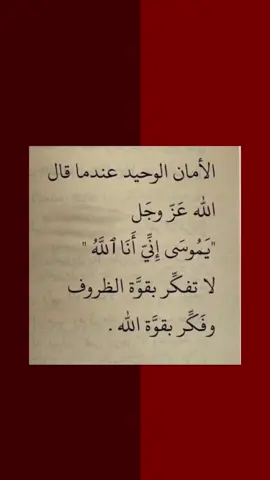 الأمان الوحيد عندما قال
الله عَزّ وجَل
"يَمُوسَى إِنِّيٓ أَنَا ٱللَّهُ "
لا تفكِّر بقوَّة الظروف
وفَكِّر بقوَّة الله .